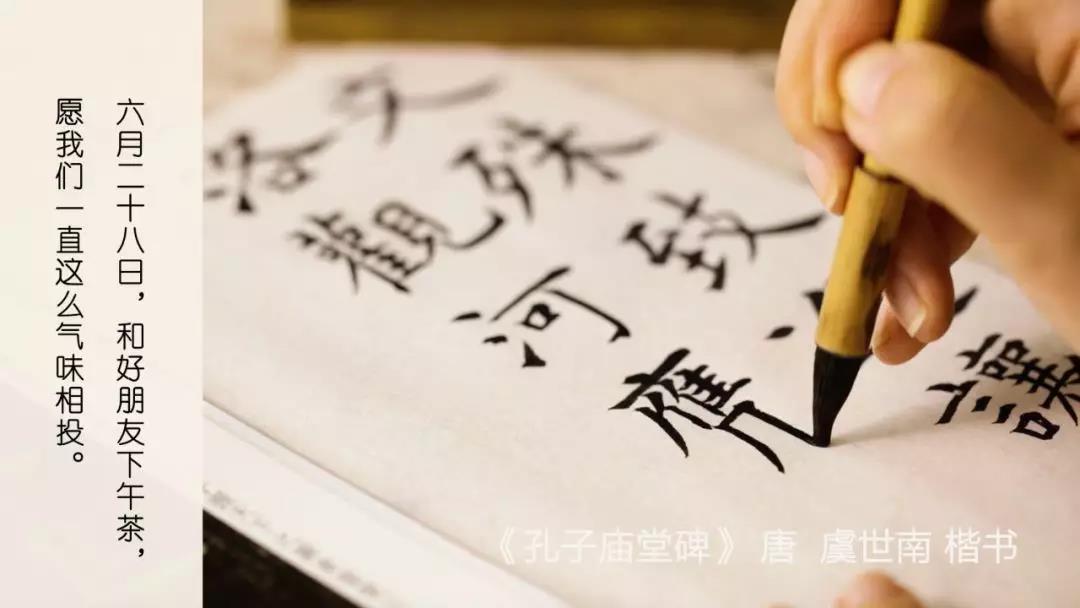 六月二十八日，和好朋友下午茶，
愿我们一直这么气味相投。
文殊致讓
洛觀河膺
《孔子庙堂碑》 唐 虞世南 楷书